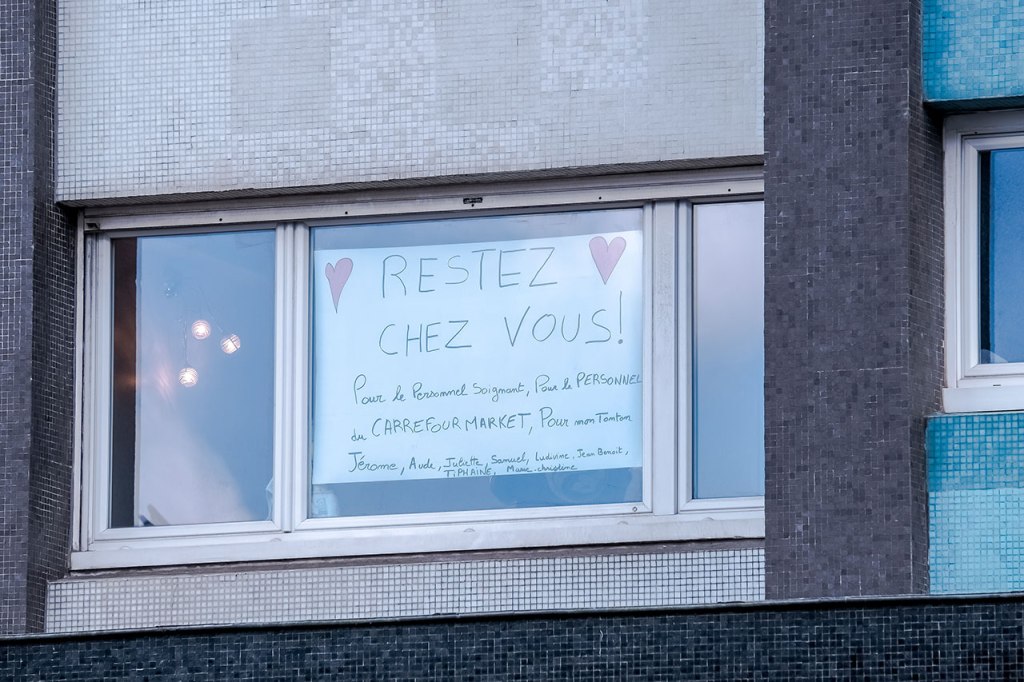 RESTEZ
CHEZ VOUS!
Pour le Personnel Soignant, Pour le PERSONNEL
du CARREFOUR MARKET, Pour mon Tonton
Jérome, Aude, Juliette, Samuel, Ludivine, Jean Benoit,
TIPHAINE, Marie-christine